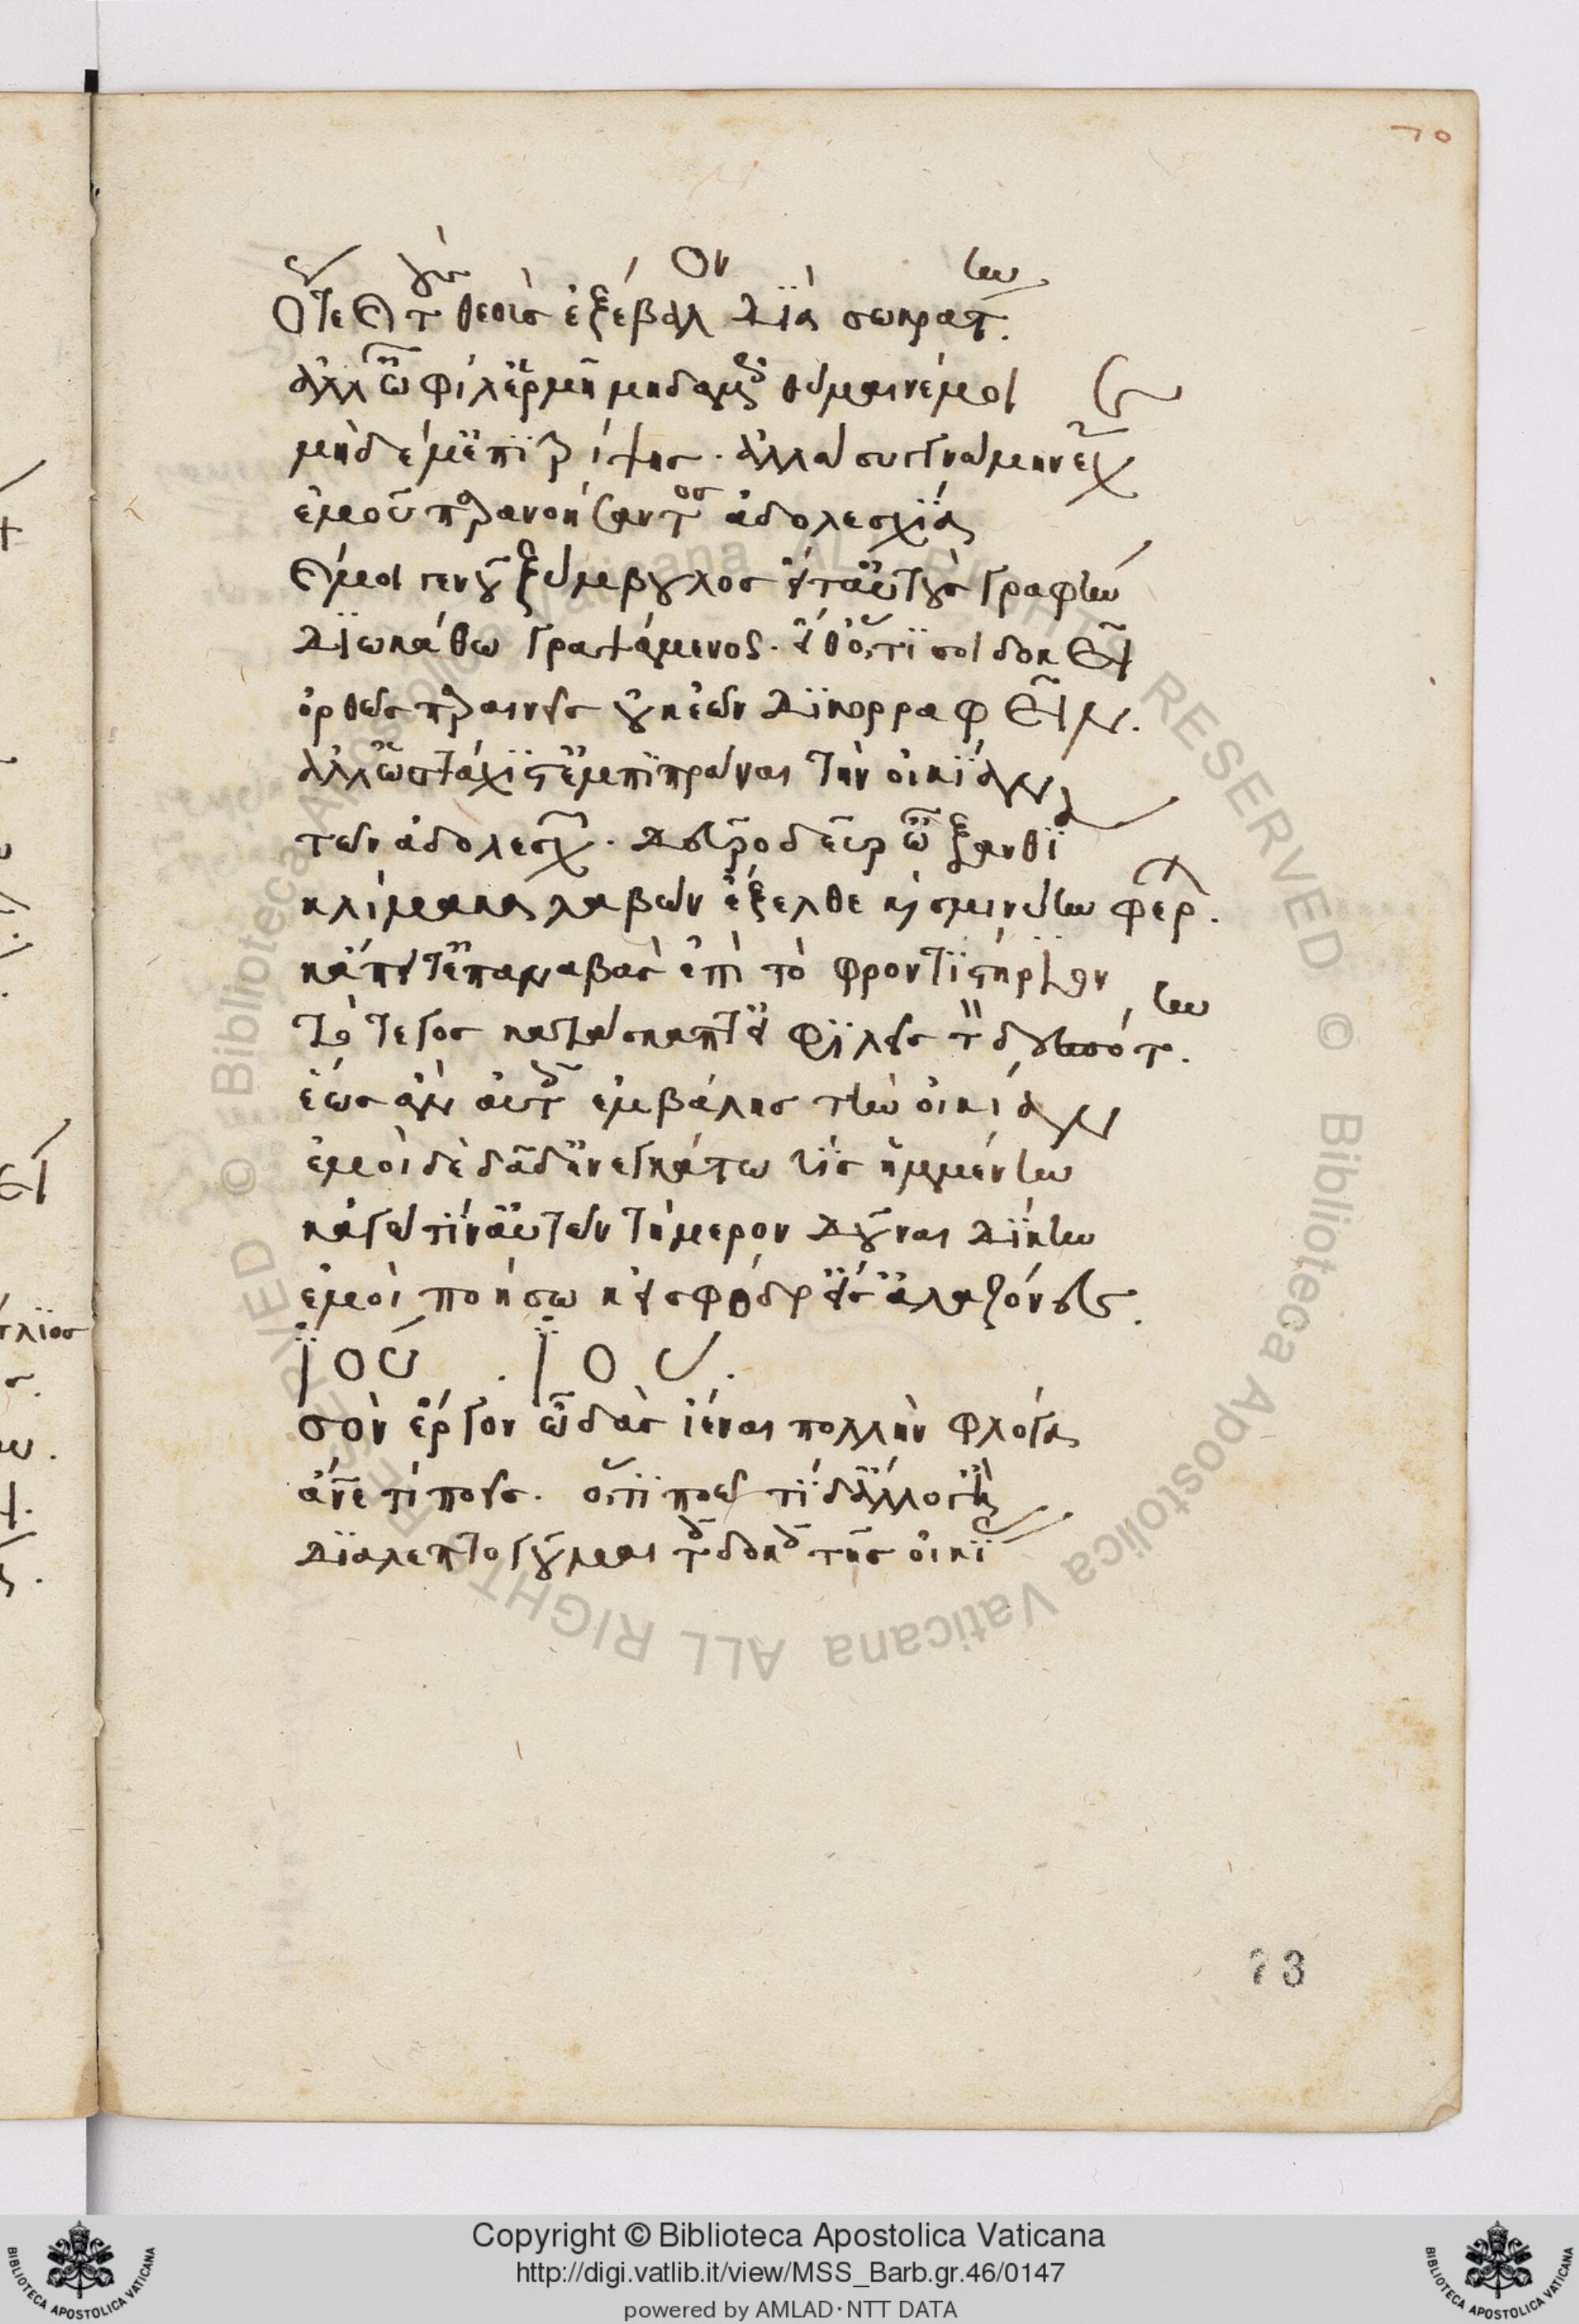 70
ὅτε καὶ τοὺς θεοὺς ἐξέβαλον διὰ σωκράτην.
ἀλλ' ὦ φίλ' ἑρμῆ μηδαμῶς θύμαινέ μοι
μηδέ μ' ἐπιτρίψης. ἀλλὰ συγγνώμην ἔχε
ἐμοῦ παρανοήσαντος ἀδολεσχία
καί μοι γενοῦ ξύμβουλος εἴτ' αὐτοὺς γραφὴν
διωκάθω γραψάμενος. εἴθ' ὅ, τι σοι δοκεῖ
ὀρθῶς παραινεῖς οὐκ ἐῶν δικορραφεῖν.
ἀλλ' ὡς τάχιστ' ἐμπιπράναι τὴν οἰκίαν
τῶν ἀδολεσχῶν. δεῦρο δεῦρ' ὦ ξανθία
κλίμακα λαβὼν ἔξελθε καὶ σμινύην φέρων.
κἄπειτ' ἐπαναβὰς ἐπὶ τὸ φροντιστήριον
τὸ τέγος κατάσκαπτ' εἰ φιλεῖς τὸν δεσπότην.
ἕως ἂν αὐτοῖς ἐμβάλης τὴν οἰκίαν
ἐμοὶ δὲ δᾶδ' ἐνεγκάτω τὶς ἡμμένην
κἀγώ τιν' αὐτῶν τήμερον δοῦναι δίκην
ἐμοὶ ποιήσω κεἰ σφόδρ' εἴσ' ἀλαζόνες.
ἰοὺ . ἰού.
σὸν ἔργον ὦ δὰς ἱέναι πολλὴν φλόγα
ἄν̅ε τί ποιεῖς. ὅ, τι ποιῶ τί δ' ἄλλο γ' ἢ
διαλεπτολογοῦμαι ταῖς δοκοῖς τῆς οἰκίας
73
© Biblioteca Apostolica Vaticana ALL RIGHTS RESERVED © Biblioteca Apostolica Vaticana ALL RIGHTS RESERVED
Copyright © Biblioteca Apostolica Vaticana
http://digi.vatlib.it/view/MSS_Barb.gr.46/0147
powered by AMLAD·NTT DATA
BIBLIOTECA APOSTOLICA VATICANA
BIBLIOTECA APOSTOLICA VATICANA